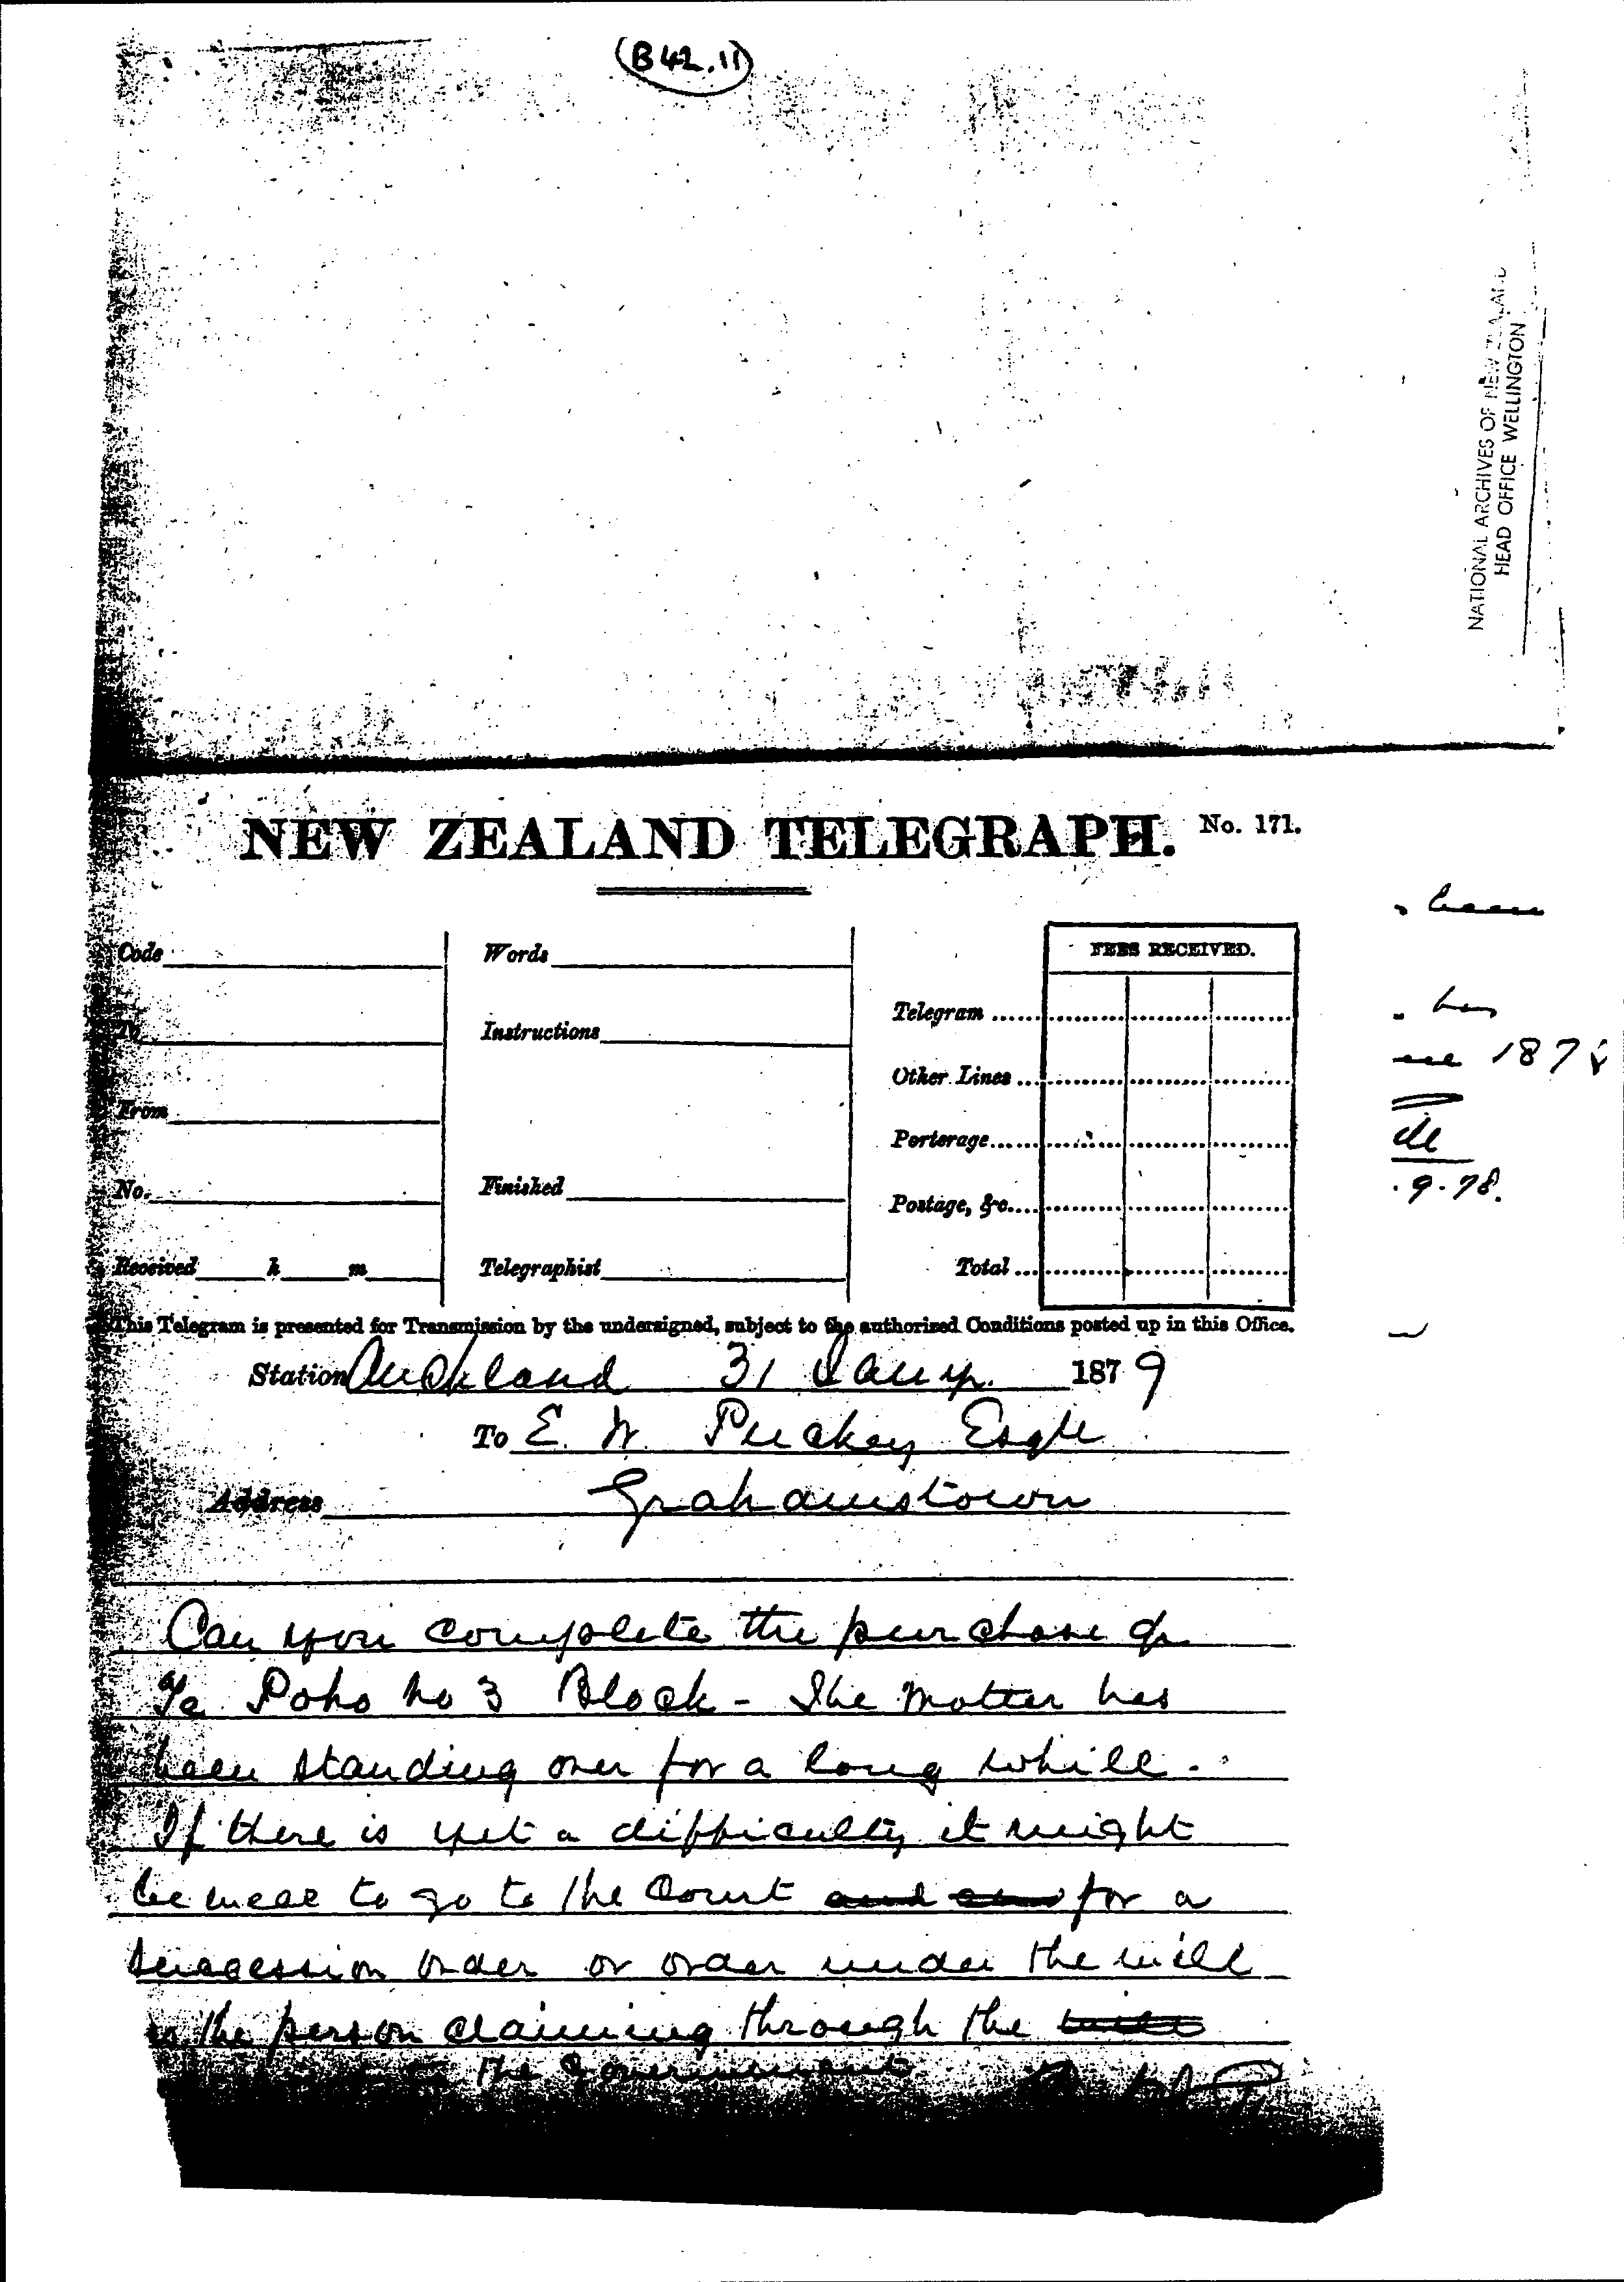 (B 42. 11)
NATIONAL ARCHIVES OF NEW ZEALAND
HEAD OFFICE WELLINGTON
NEW ZEALAND TELEGRAPH. No. 171.
Code
Words
FEES RECEIVED.
To
Instructions
Telegram
Other Lines
From
Porterage
No.
Finished
Postage, &c.
Received h m
Telegraphist
Total
been
has
1878
.9.78.
This Telegram is presented for Transmission by the undersigned, subject to the authorised Conditions posted up in this Office.
Station Auckland 31 Jany. 1879
To E. W. Puckey Esqre
Address Grahamstown
Can you complete the purchase of
Te Poho No 3 Block - The matter has
been standing over for a long while.
If there is yet a difficulty it might
be well to go to the Court and for a
succession order or order under the will
to the person claiming through the will
the Government